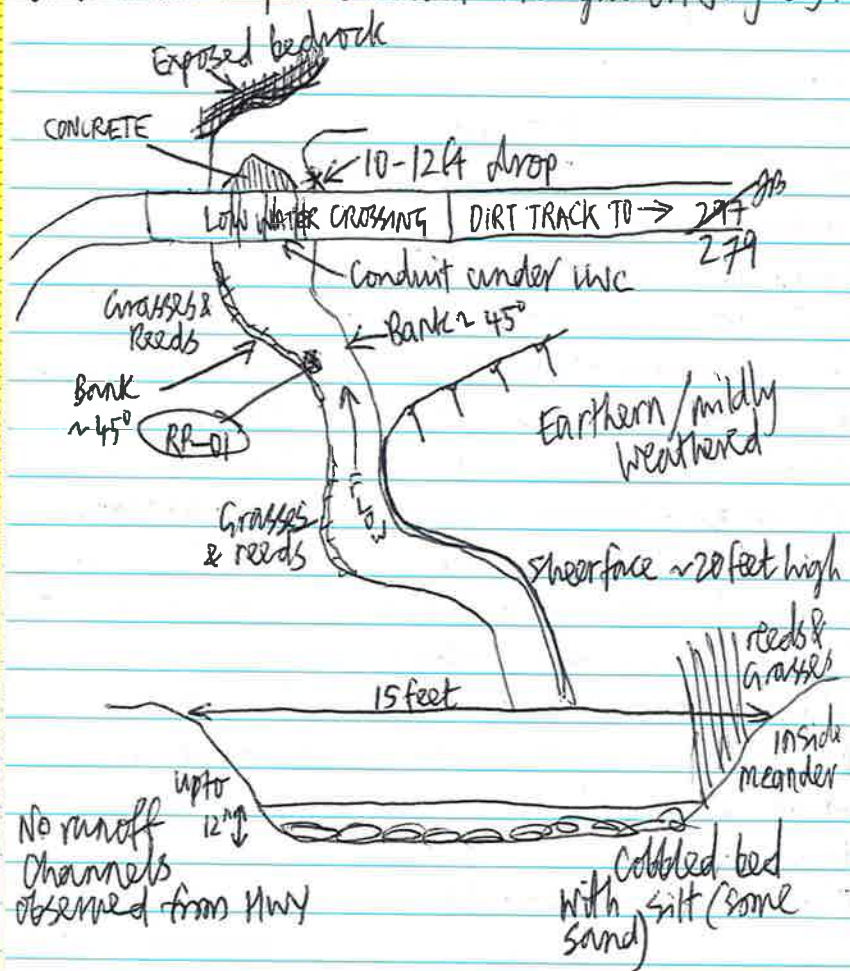 Exposed bedrock
CONCRETE
10-12ft drop
LOW WATER CROSSING
DIRT TRACK TO → 297 JB
279
Conduit under LWC
Grasses &
Reeds
Bank ~ 45°
Bank
~45°
RP-01
Earthern/mildly
weathered
FLOW
Grasses
& reeds
Sheer face ~20 feet high
reeds &
Grasses
15 feet
inside
meander
upto
12"
No runoff
Channels
observed from HWY
Cobbled bed
with silt (some
sand)